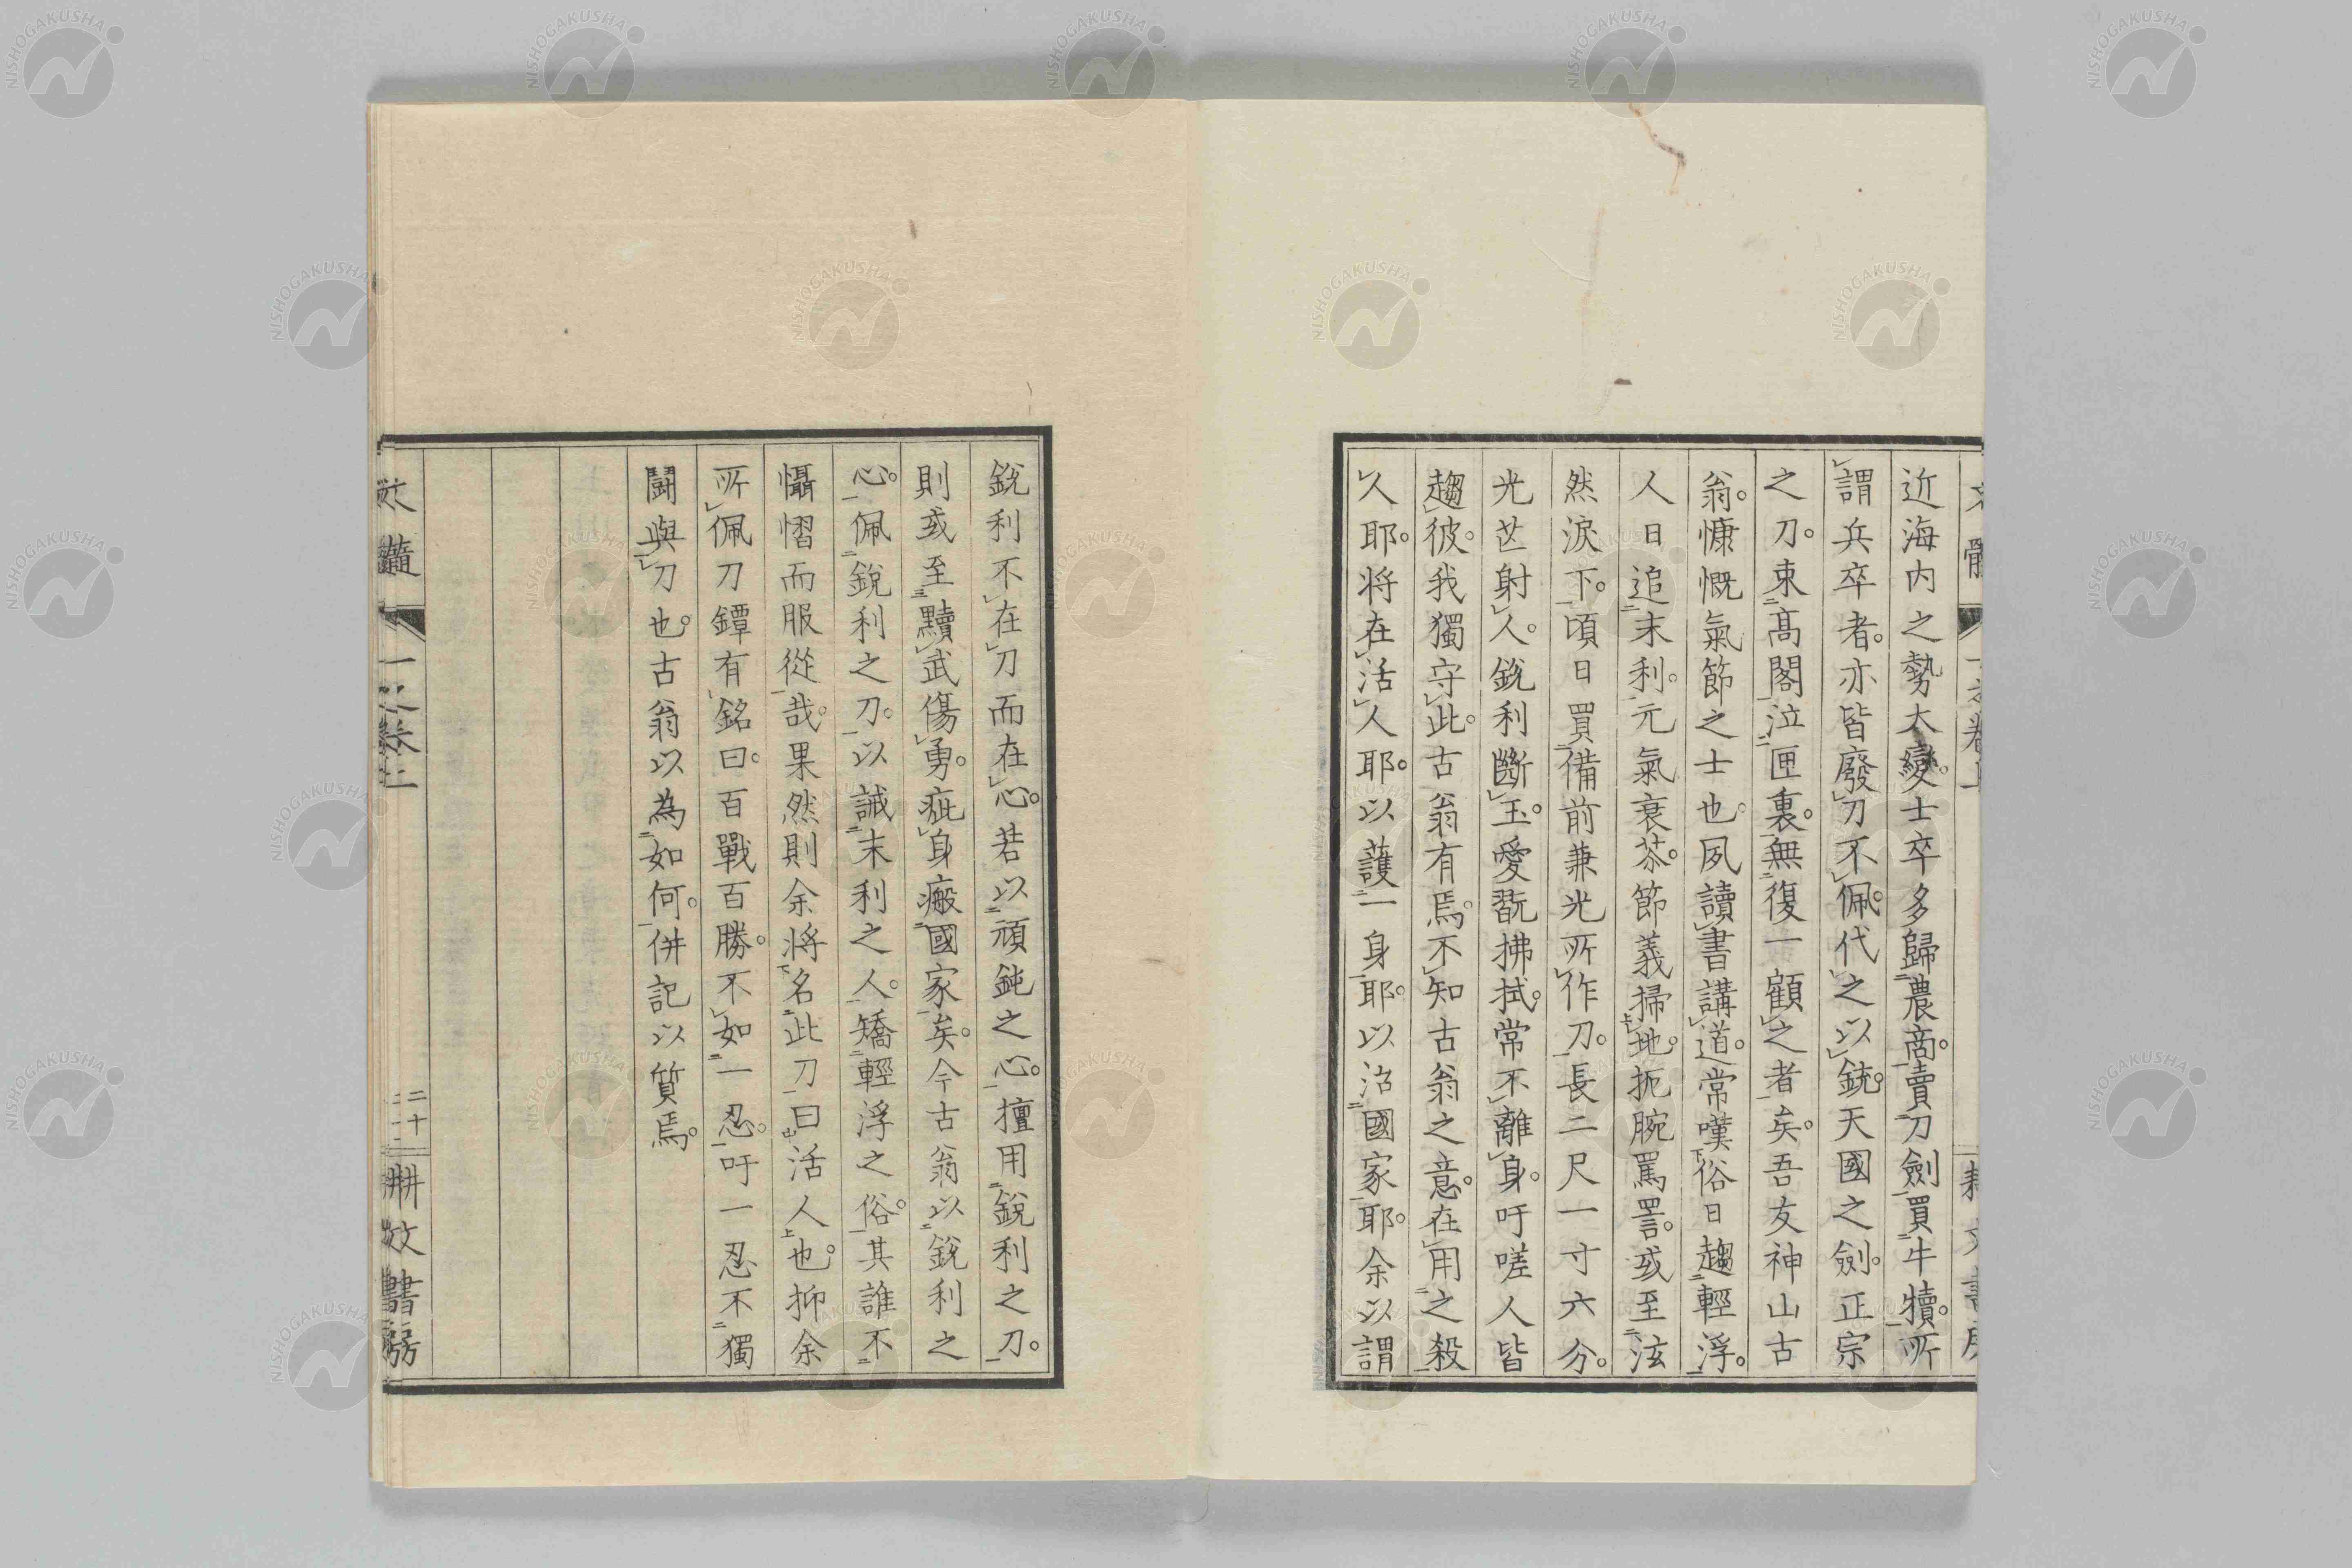 近海内之勢大變。士卒多歸農商。賣刀劍買牛犢。所
謂兵卒者。亦皆廢刀不佩。代之以銃。天國之劍。正宗
之刀。束高閣泣匣裏。無復一顧之者矣。吾友神山古
翁。慷慨氣節之士也。夙讀書講道。常嘆俗日趨輕浮。
人日追末利。元氣衰苶。節義掃地。扼腕罵詈。或至泫
然淚下。頃日買備前兼光所作刀。長二尺一寸六分。
光芒射人。銳利斷玉。愛翫拂拭。常不離身。吁嗟人皆
趨彼。我獨守此。古翁有焉。不知古翁之意。在用之殺
人耶。将在活人耶。以護一身耶。以治國家耶。余以謂
銳利不在刀而在心。若以頑鈍之心。擅用銳利之刀。
則或至黷武傷勇。疵身瘢國家矣。今古翁以銳利之
心。佩銳利之刀。以誡末利之人。矯輕浮之俗。其誰不
懾慴而服從哉。果然則余将名此刀曰活人也。抑余
所佩刀鐔有銘曰。百戰百勝。不如一忍。吁一忍不獨
鬪與刀也。古翁以為如何。併記以質焉。
文髓
一之卷上
二十二
耕文書房
NISHOGAKUSHA